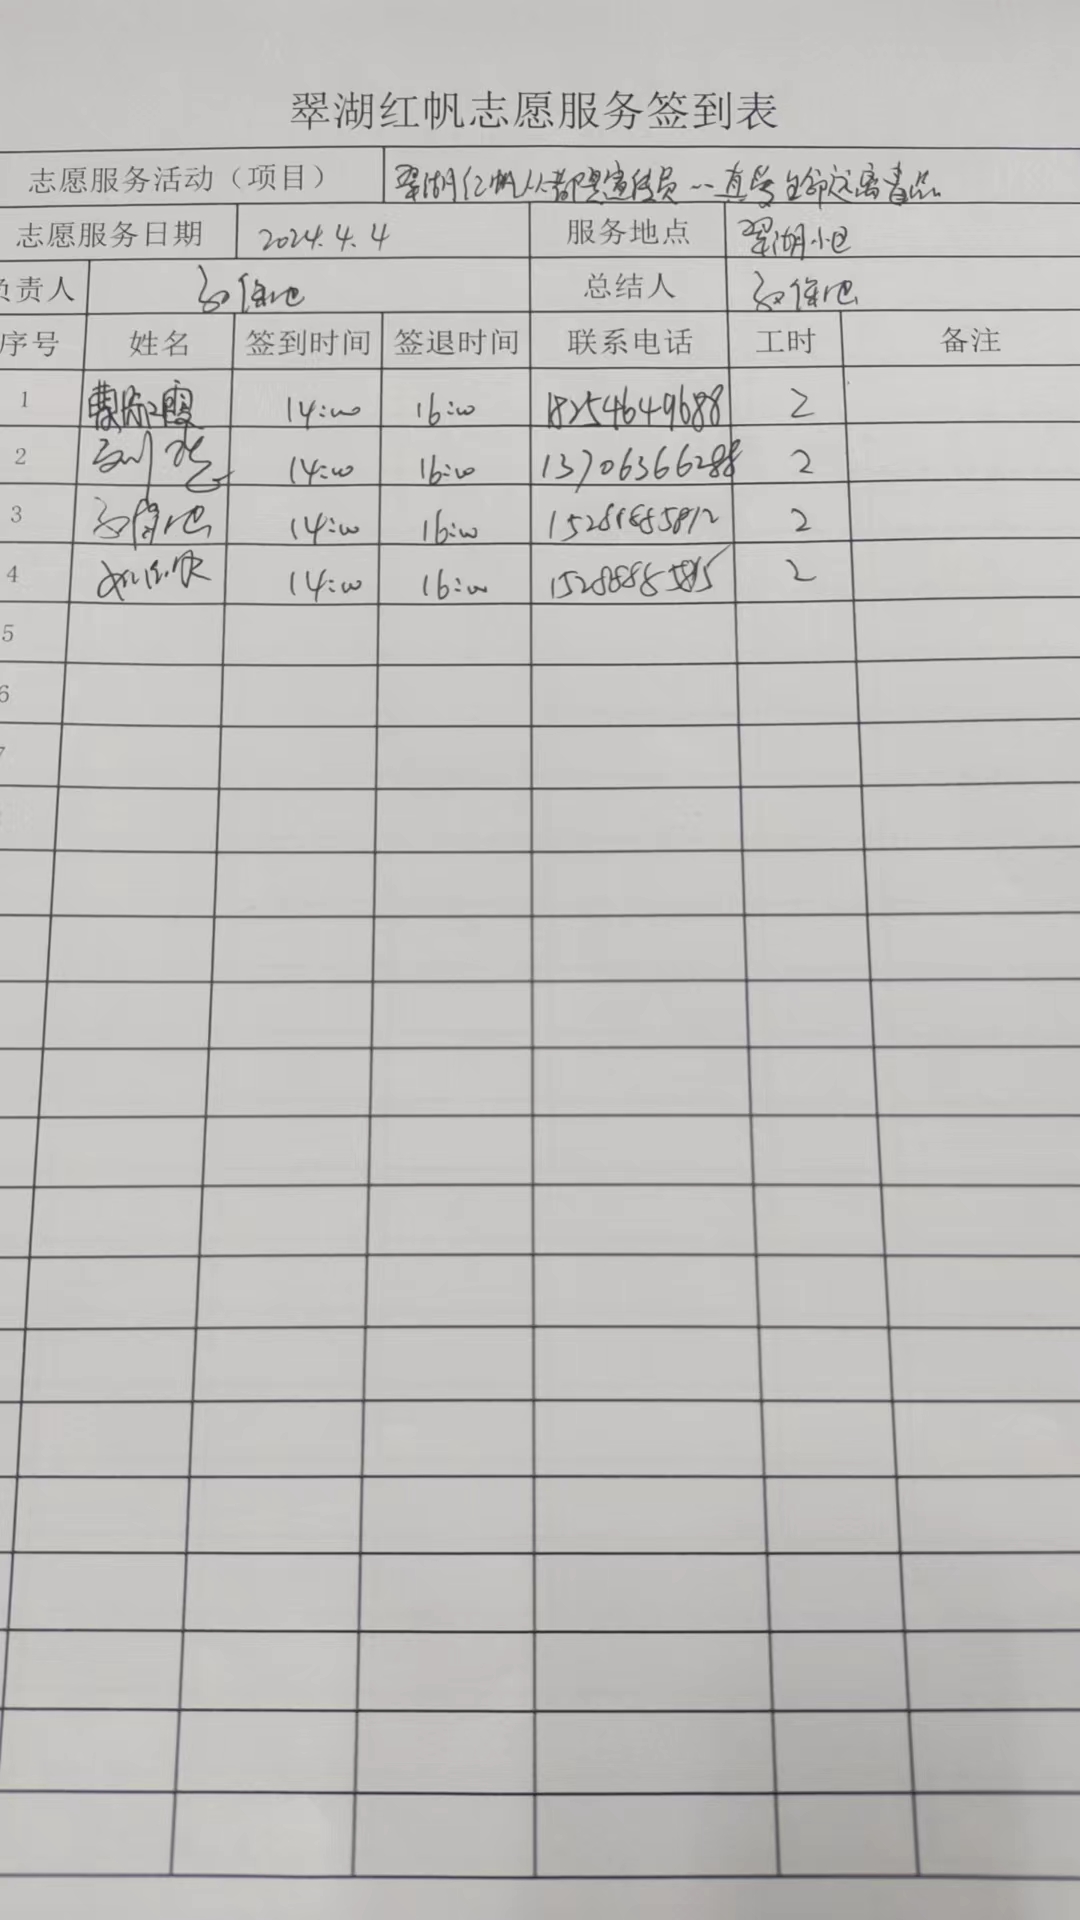 翠湖红帆志愿服务签到表
志愿服务活动（项目） 翠湖红帆人人都是宣传员 生命远离毒品
志愿服务日期 2024.4.4 服务地点 翠湖小区
负责人 总结人
序号 姓名 签到时间 签退时间 联系电话 工时 备注
1 14:00 16:00 18254649688 2
2 刘 14:00 16:00 13706366288 2
3 14:00 16:00 2
4 14:00 16:00 2
5
6
7